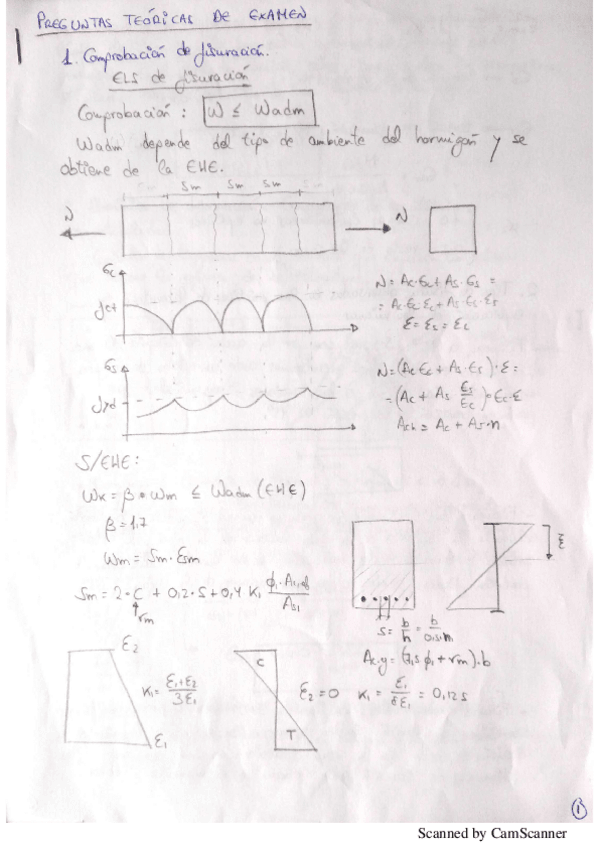 PREGUNTAS TEÓRICAS DE EXAMEN
1. Comprobación de fisuración.
ELS de fisuración
Comprobación: W ≤ Wadm
Wadm depende del tipo de ambiente del hormigón y se
obtiene de la EHE.
Sm Sm Sm
N N
fct
N = Ac·σc + As·σs =
= Ac·Ec·εc + As·Es·εs
fyd
N = (Ac·Ec + As·Es)·ε =
= (Ac + As Es/Ec)·Ec·ε
Ac + As·n
S/EHE:
Wk = β · Wm ≤ Wadm (EHE)
β = 1,7
Wm = Sm · Esm
Sm = 2·C + 0,2·S + 0,4 K1 ϕ1·Ac,ef/As1
rm
S = b/n = b/0,5·n
(7,5 ϕ1 + rm)·b
ε2
K1 = ε1+ε2/3ε1
ε1
C
T
ε2 = 0 K1 = ε1/8ε1 = 0,125
1
Scanned by CamScanner